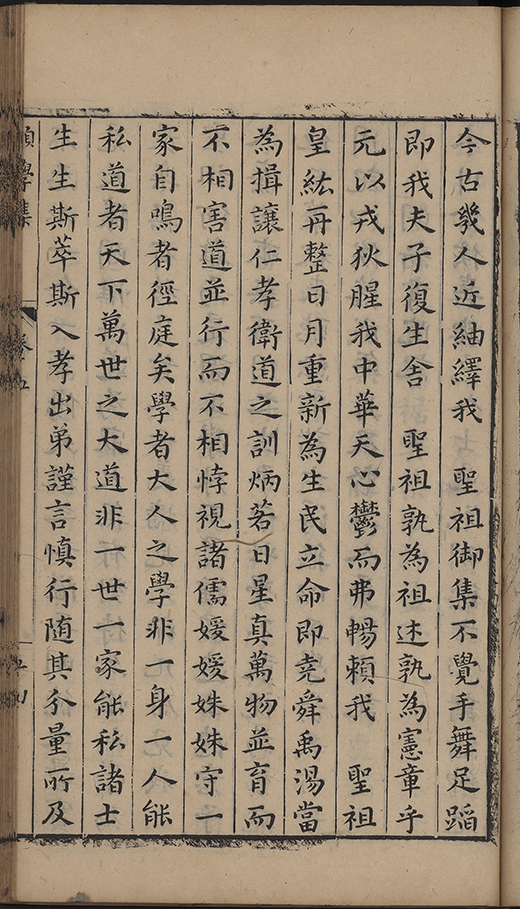 今古幾人近紬繹我　聖祖御集不覺手舞足蹈
即我夫子復生舍　聖祖孰為祖述孰為憲章乎
元以戎狄腥我中華天心鬱而弗暢賴我　聖祖
皇紘再整日月重新為生民立命即堯舜禹湯當
為揖讓仁孝衛道之訓炳若日星真萬物並育而
不相害道並行而不相悖視諸儒媛媛姝姝守一
家自鳴者徑庭矣學者大人之學非一身一人能
私道者天下萬世之大道非一世一家能私諸士
生生斯萃斯入孝出弟謹言慎行随其分量所及
學集
卷五